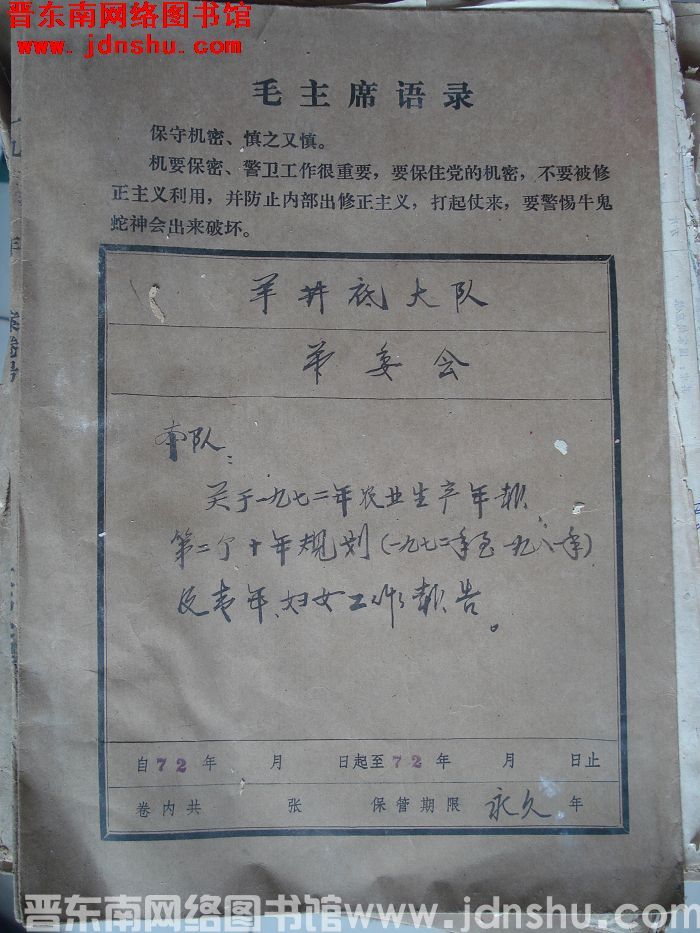 晋东南网络图书馆
www.jdnshu.com
毛主席语录
保守机密、慎之又慎。
机要保密、警卫工作很重要，要保住党的机密，不要被修
正主义利用，并防止内部出修正主义，打起仗来，要警惕牛鬼
蛇神会出来破坏。
羊井底大队
革委会
本队：
关于一九七二年农业生产年报
第二个十年规划(一九七二年至一九八一年)
及青年、妇女工作报告。
自72年 月 日起至72年 月 日止
卷内共 张 保管期限 永久 年
案卷号
晋东南网络图书馆 www.jdnshu.com